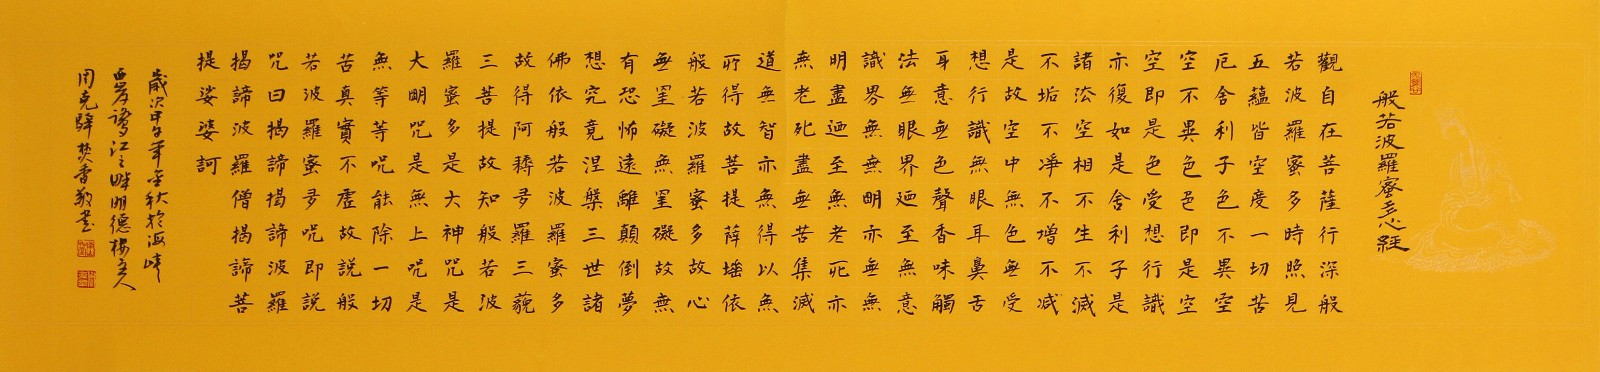 般若波羅蜜多心經
觀自在菩薩行深般
若波羅蜜多時照見
五蘊皆空度一切苦
厄舍利子色不異空
空不異色色即是空
空即是色受想行識
亦復如是舍利子是
諸法空相不生不滅
不垢不淨不增不减
是故空中無色無受
想行識無眼耳鼻舌
身意無色聲香味觸
法無眼界廼至無意
識界無無明亦無無
明盡廼至無老死亦
無老死盡無苦集滅
道無智亦無得以無
所得故菩提薩埵依
般若波羅蜜多故心
無罣礙無罣礙故無
有恐怖遠離顛倒夢
想究竟涅槃三世諸
佛依般若波羅蜜多
故得阿耨多羅三藐
三菩提故知般若波
羅蜜多是大神咒是
大明咒是無上咒是
無等等咒能除一切
苦真實不虛故說般
若波羅蜜多咒即說
咒曰揭諦揭諦波羅
揭諦波羅僧揭諦菩
提娑婆訶
歲次甲午年金秋於海峽
西岸鷺江之畔明德樓主人
周克驊焚香敬書